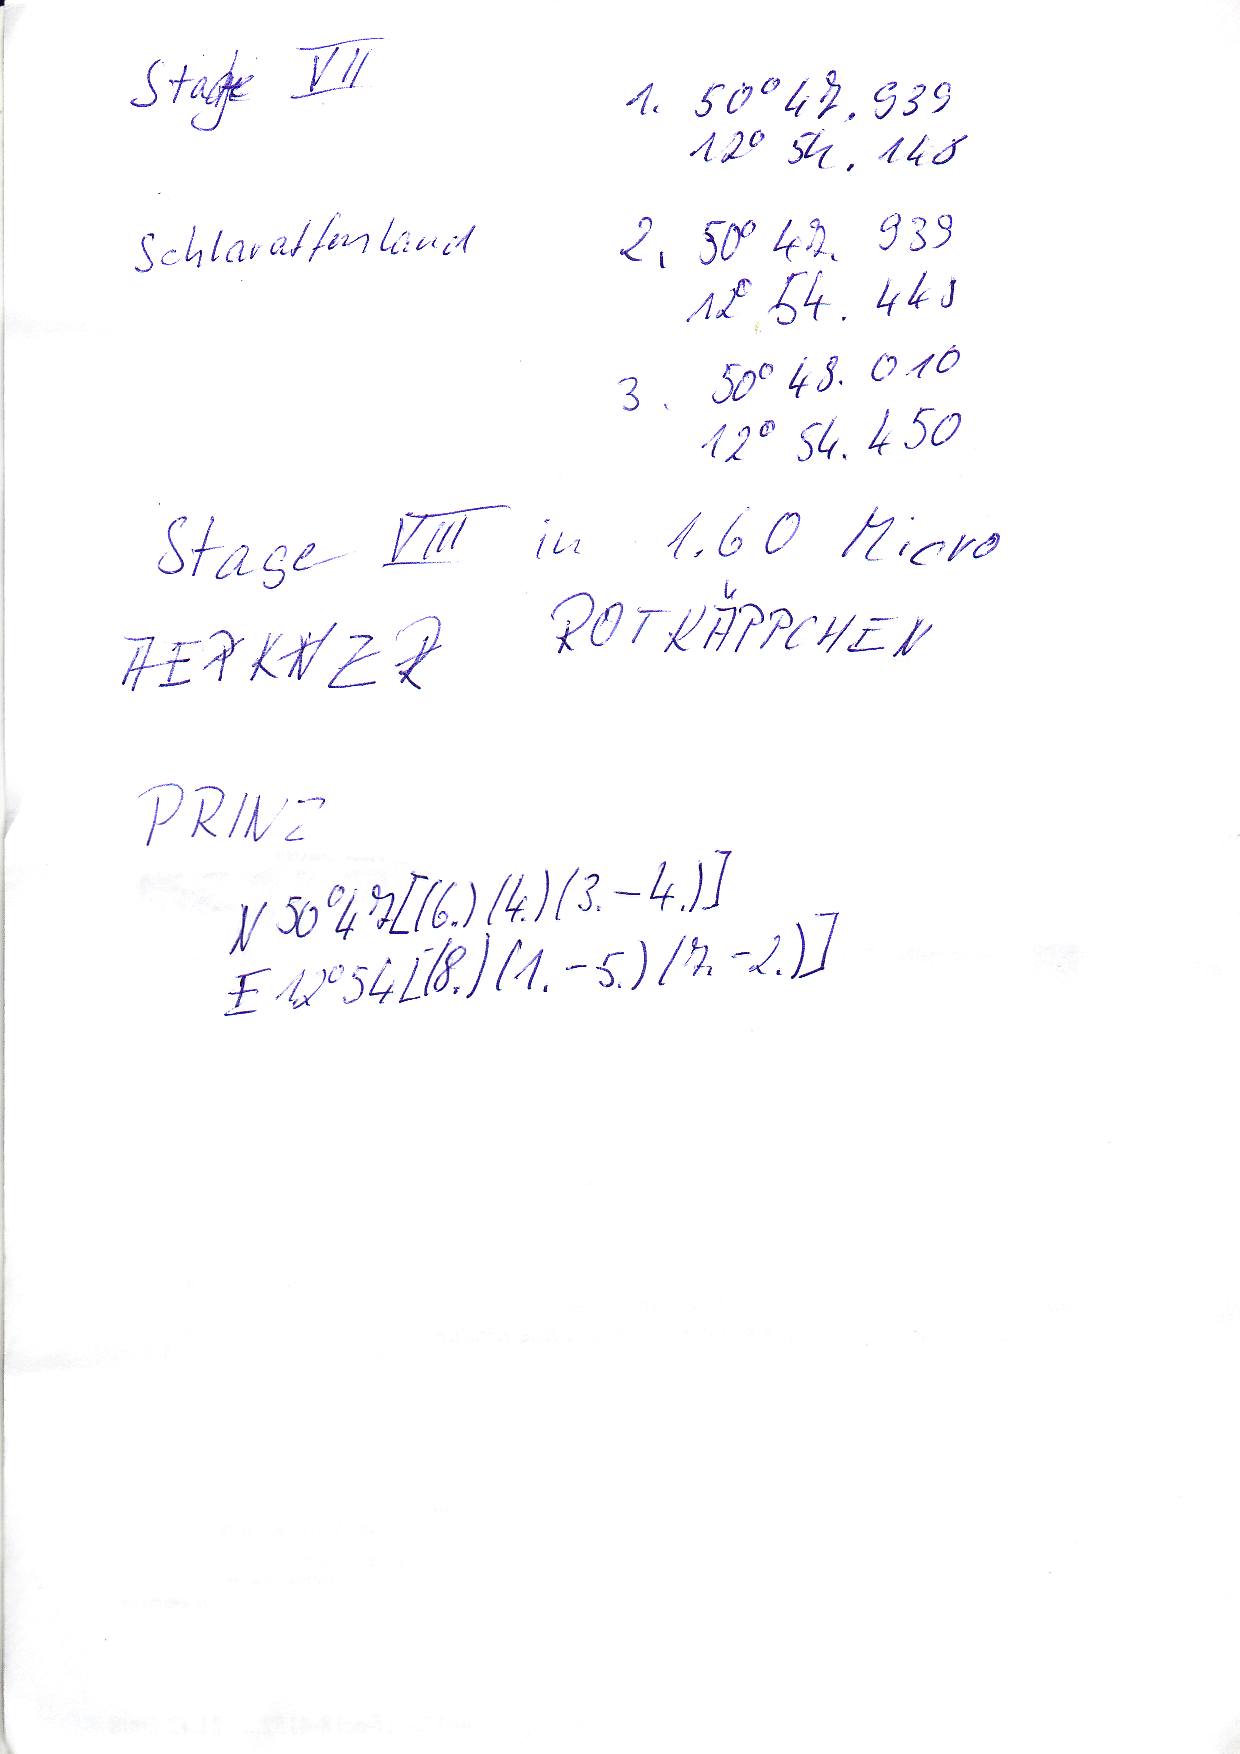 Stage VII
1. 50° 47. 939
12° 54. 148
Schlaraffenland
2. 50° 47. 939
12° 54. 448
3. 50° 48. 010
12° 54. 450
Stage VIII in 1.60 Micro
ROTKÄPPCHEN
PRINZ
N 50° 47 [(6.) (4.) (3. - 4.)]
E 12° 54 [(8.) (1. - 5.) (7. - 2.)]